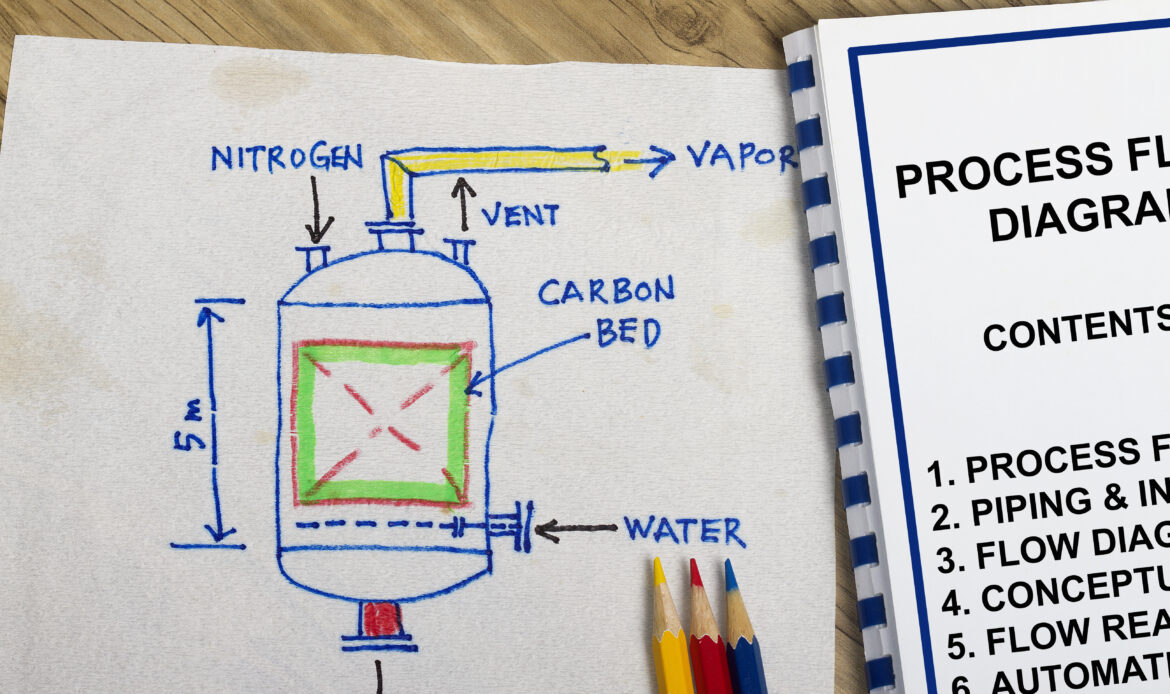 NITROGEN
VAPOR
VENT
CARBON
BED
5 m
WATER
PROCESS FL
DIAGRA
CONTENTS
1. PROCESS F
2. PIPING & IN
3. FLOW DIAG
4. CONCEPTU
5. FLOW REA
6. AUTOMATI